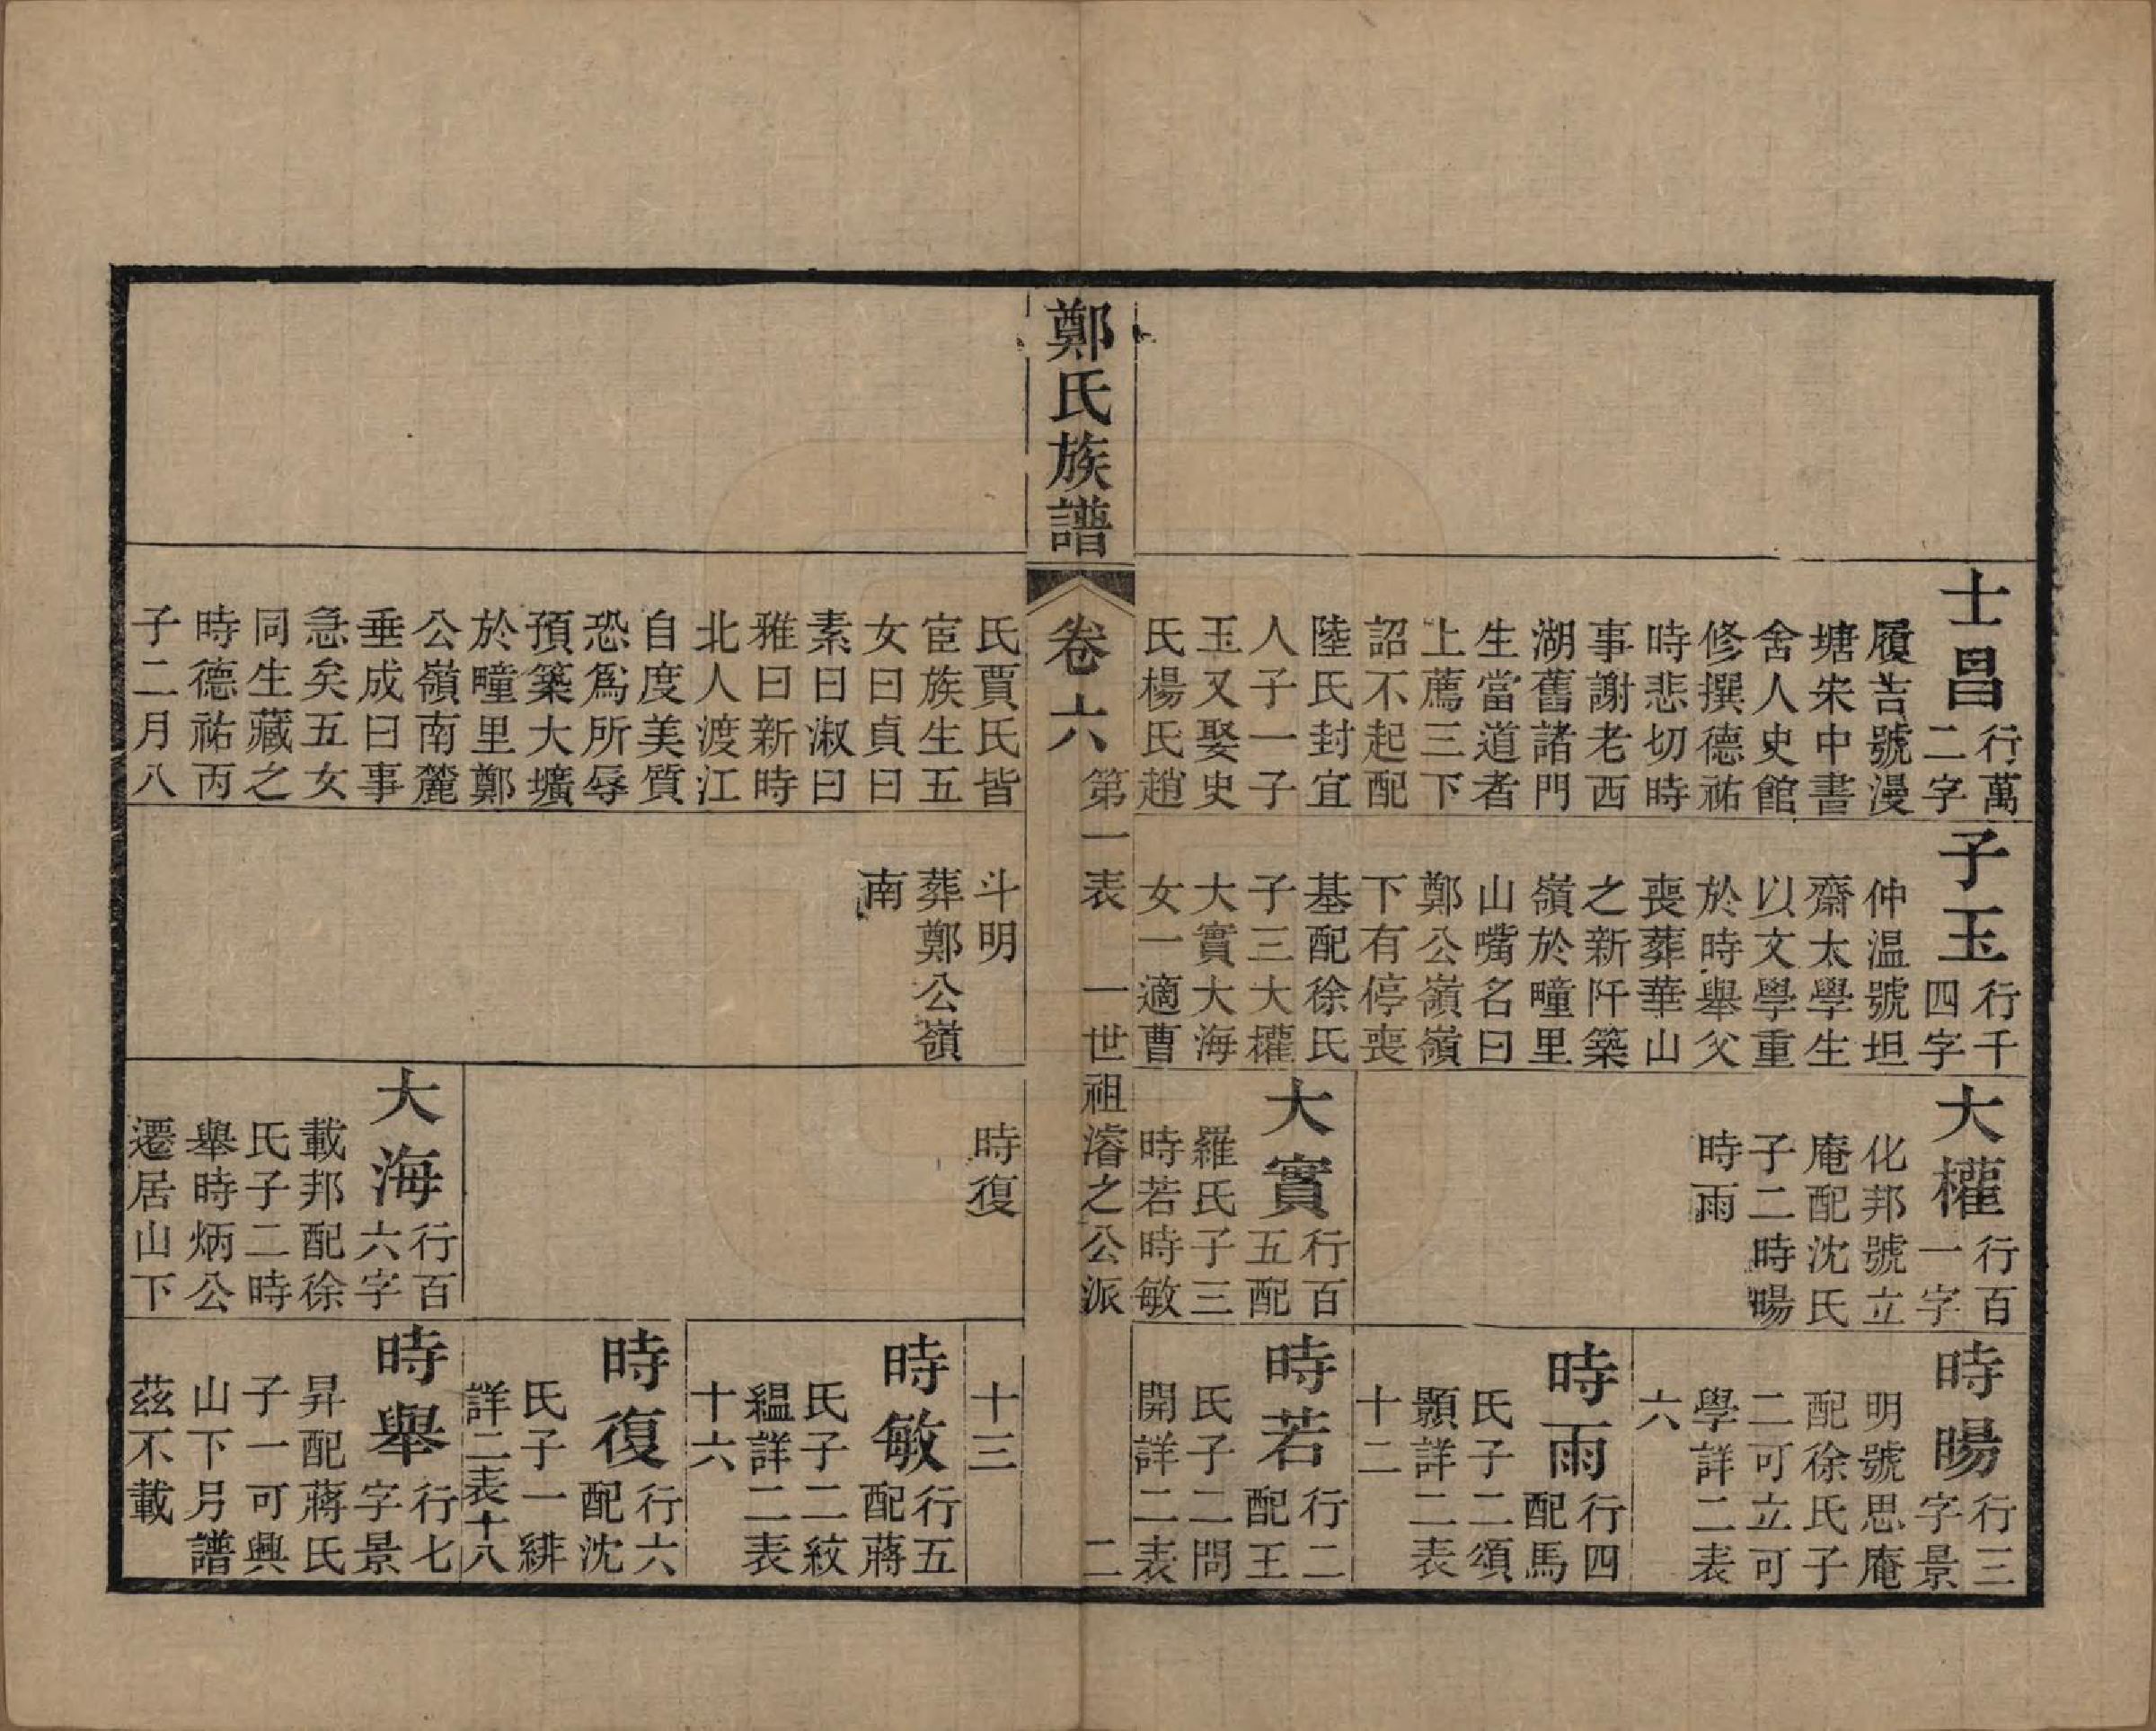 士昌
行萬
二字
履吉號漫
塘宋中書
舍人史館
修撰德祐
時悲切時
事謝老西
湖舊諸門
生當道者
上薦三下
詔不起配
陸氏封宜
人子一子
玉又娶史
氏楊氏趙
子玉
行千
四字
仲温號坦
齋太學生
以文學重
於時舉父
喪葬華山
之新阡築
嶺於疃里
山嘴名曰
鄭公嶺嶺
下有停喪
基配徐氏
子三大權
大實大海
女一適曹
大權
行百
一字
化邦號立
庵配沈氏
子二時暘
時雨
大實
行百
五配
羅氏子三
時若時敏
時暘
行三
字景
明號思庵
配徐氏子
二可立可
學詳二表
六
時雨
行四
配馬
氏子二頌
顥詳二表
十二
時若
行二
配王
氏子二問
開詳二表
鄭氏族譜
卷六
第一表 一世祖濬之公派 二
氏賈氏皆
宦族生五
女曰貞曰
素曰淑曰
雅曰新時
北人渡江
自度美質
恐爲所辱
預築大壙
於疃里鄭
公嶺南麓
垂成曰事
急矣五女
同生藏之
時德祐丙
子二月八
斗明
葬鄭公嶺
南
時復
大海
行百
六字
載邦配徐
氏子二時
舉時炳公
遷居山下
十三
時敏
行五
配蔣
氏子二紋
緼詳二表
十六
時復
行六
配沈
氏子一緋
詳二表十八
時舉
行七
字景
昇配蔣氏
子一可興
山下另譜
茲不載